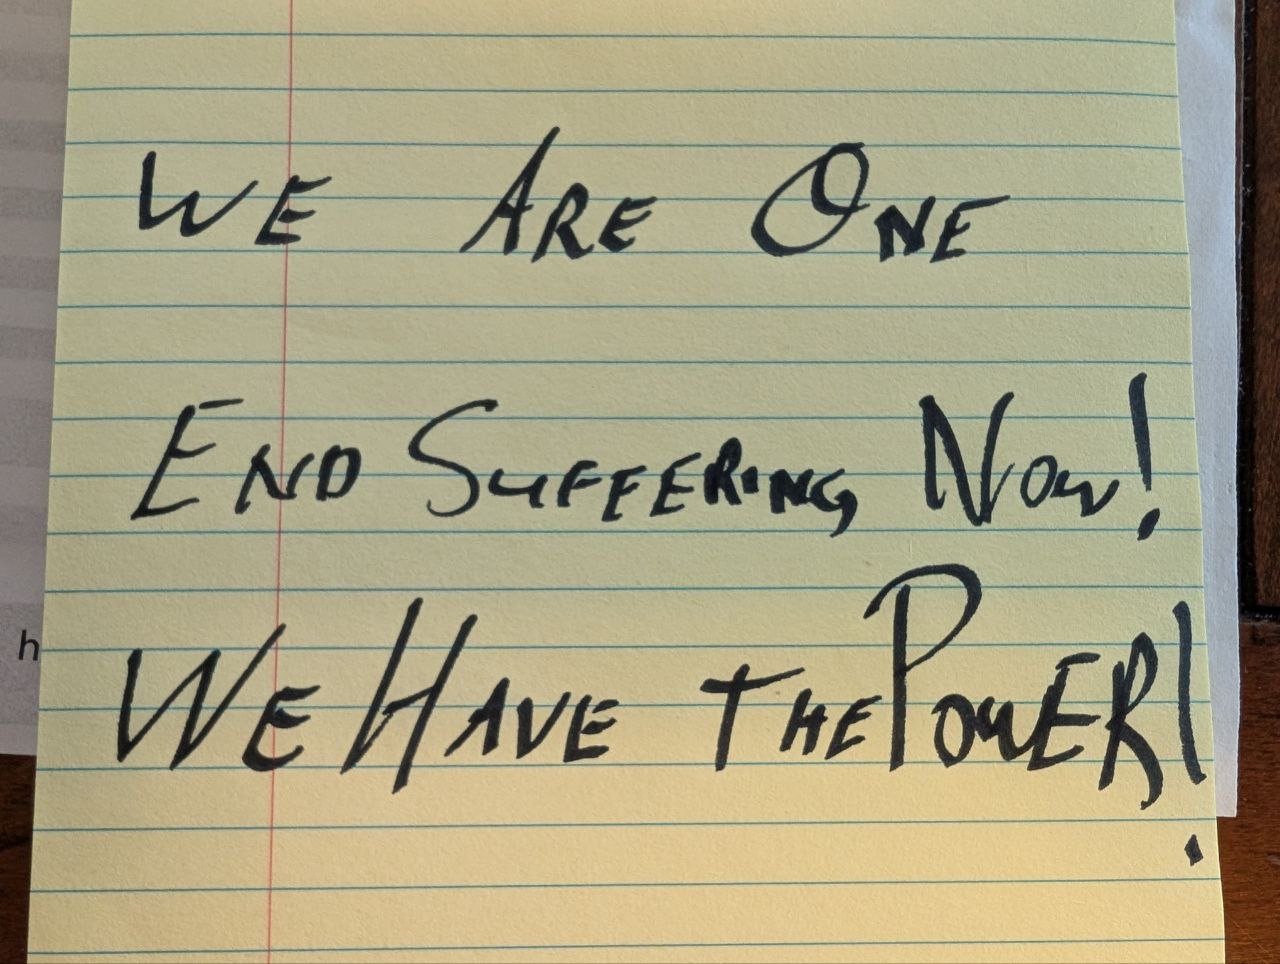 We Are One
End Suffering Now!
h
We Have the Power!